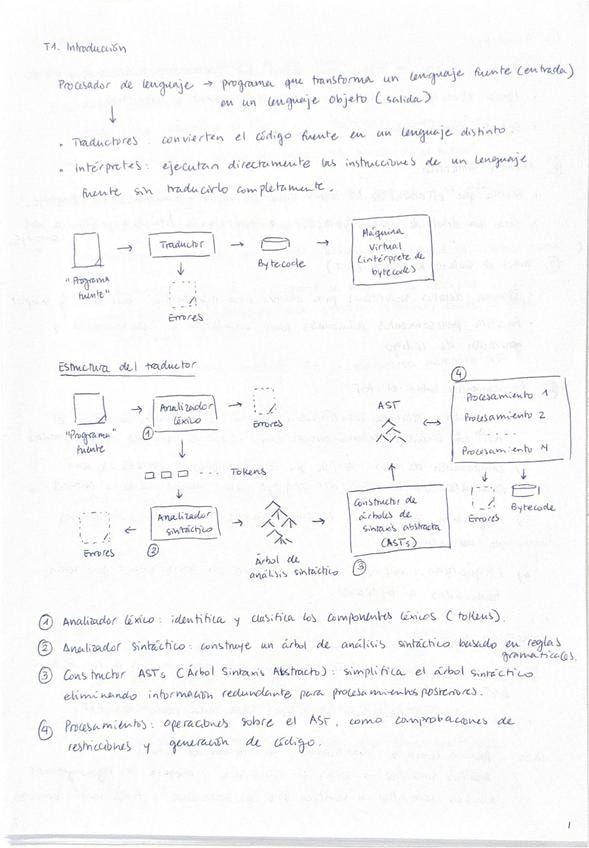 T1. Introducción
Procesador de lenguaje → programa que transforma un lenguaje fuente (entrada)
en un lenguaje objeto (salida)
• Traductores: convierten el código fuente en un lenguaje distinto.
• Intérpretes: ejecutan directamente las instrucciones de un lenguaje
fuente sin traducirlo completamente.
"Programa
fuente"
Traductor
Errores
Bytecode
Máquina
Virtual
(intérprete de
bytecodes)
Estructura del traductor
"Programa"
fuente
Analizador
léxico
1
Errores
Tokens
Analizador
sintáctico
2
Errores
árbol de
análisis sintáctico
Constructor de
árboles de
sintaxis abstracta
(ASTs)
3
AST
4
Procesamiento 1
Procesamiento 2
......
Procesamiento N
Errores
Bytecode
1 Analizador léxico: identifica y clasifica los componentes léxicos (tokens).
2 Analizador sintáctico: construye un árbol de análisis sintáctico basado en reglas
gramaticales.
3 Constructor ASTs (Árbol Sintaxis Abstracto): simplifica el árbol sintáctico
eliminando información redundante para procesamientos posteriores.
4 Procesamientos: operaciones sobre el AST, como comprobaciones de
restricciones y generación de código.
1